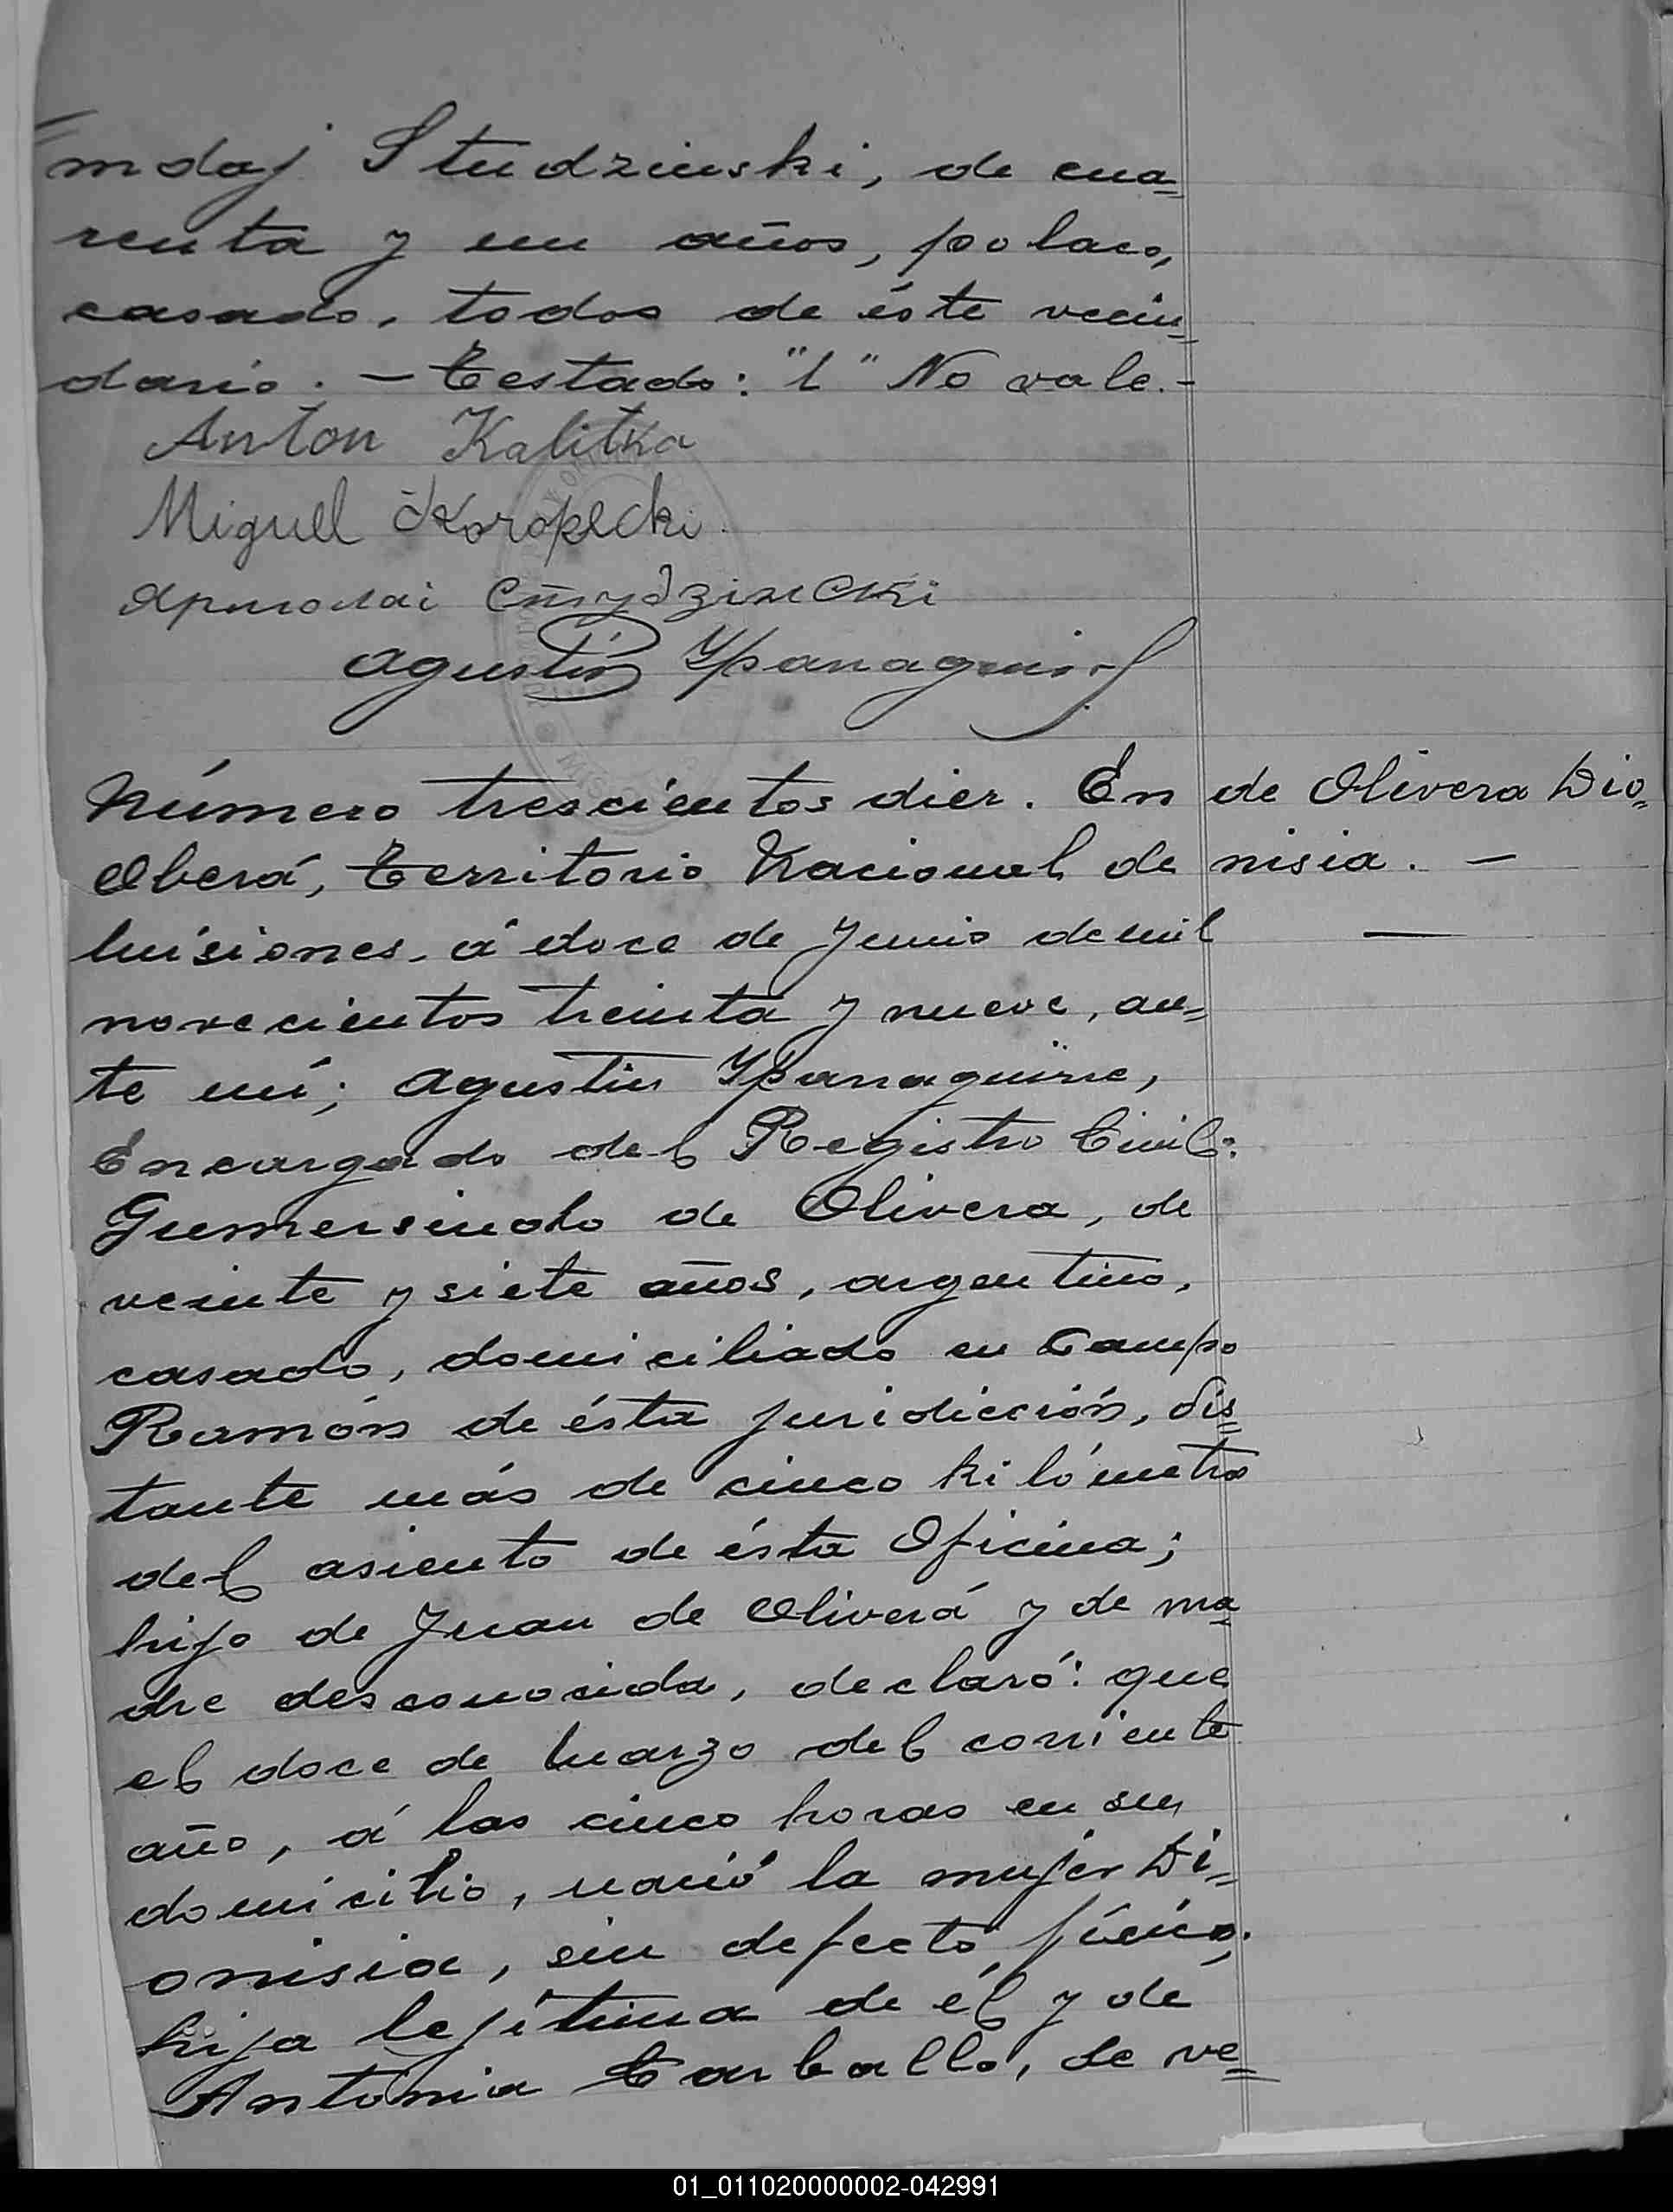 mdaj Studzinski, de cua=
renta y un años, polaco,
casado, todos de éste vecin=
dario. - Testado: "l" No vale.-
Anton Kalitka
Miguel Koropecki
Ярмолаі Студзінскі
Agustín Yparraguirre
Número trescientos diez. En
Oberá, Territorio Nacional de
Misiones, á doce de Junio de mil
novecientos treinta y nueve, an=
te mí; Agustin Yparraguirre,
Encargado del Registro Civil:
Gumersindo de Olivera, de
veinte y siete años, argentino,
casado, domiciliado en Campo
Ramón de ésta juridicción, dis=
tante más de cinco kilómetros
del asiento de ésta Oficina;
hijo de Juan de Oliverá y de ma=
dre desconocida, declaró: que
el doce de Marzo del corriente
año, á las cinco horas en su
domicilio, nació la mujer Di=
onisia, sin defecto físico;
hija lejítima de él y de
Antonia Carballo, de ve=
de Olivera Dio=
nisia. -
01_011020000002-042991